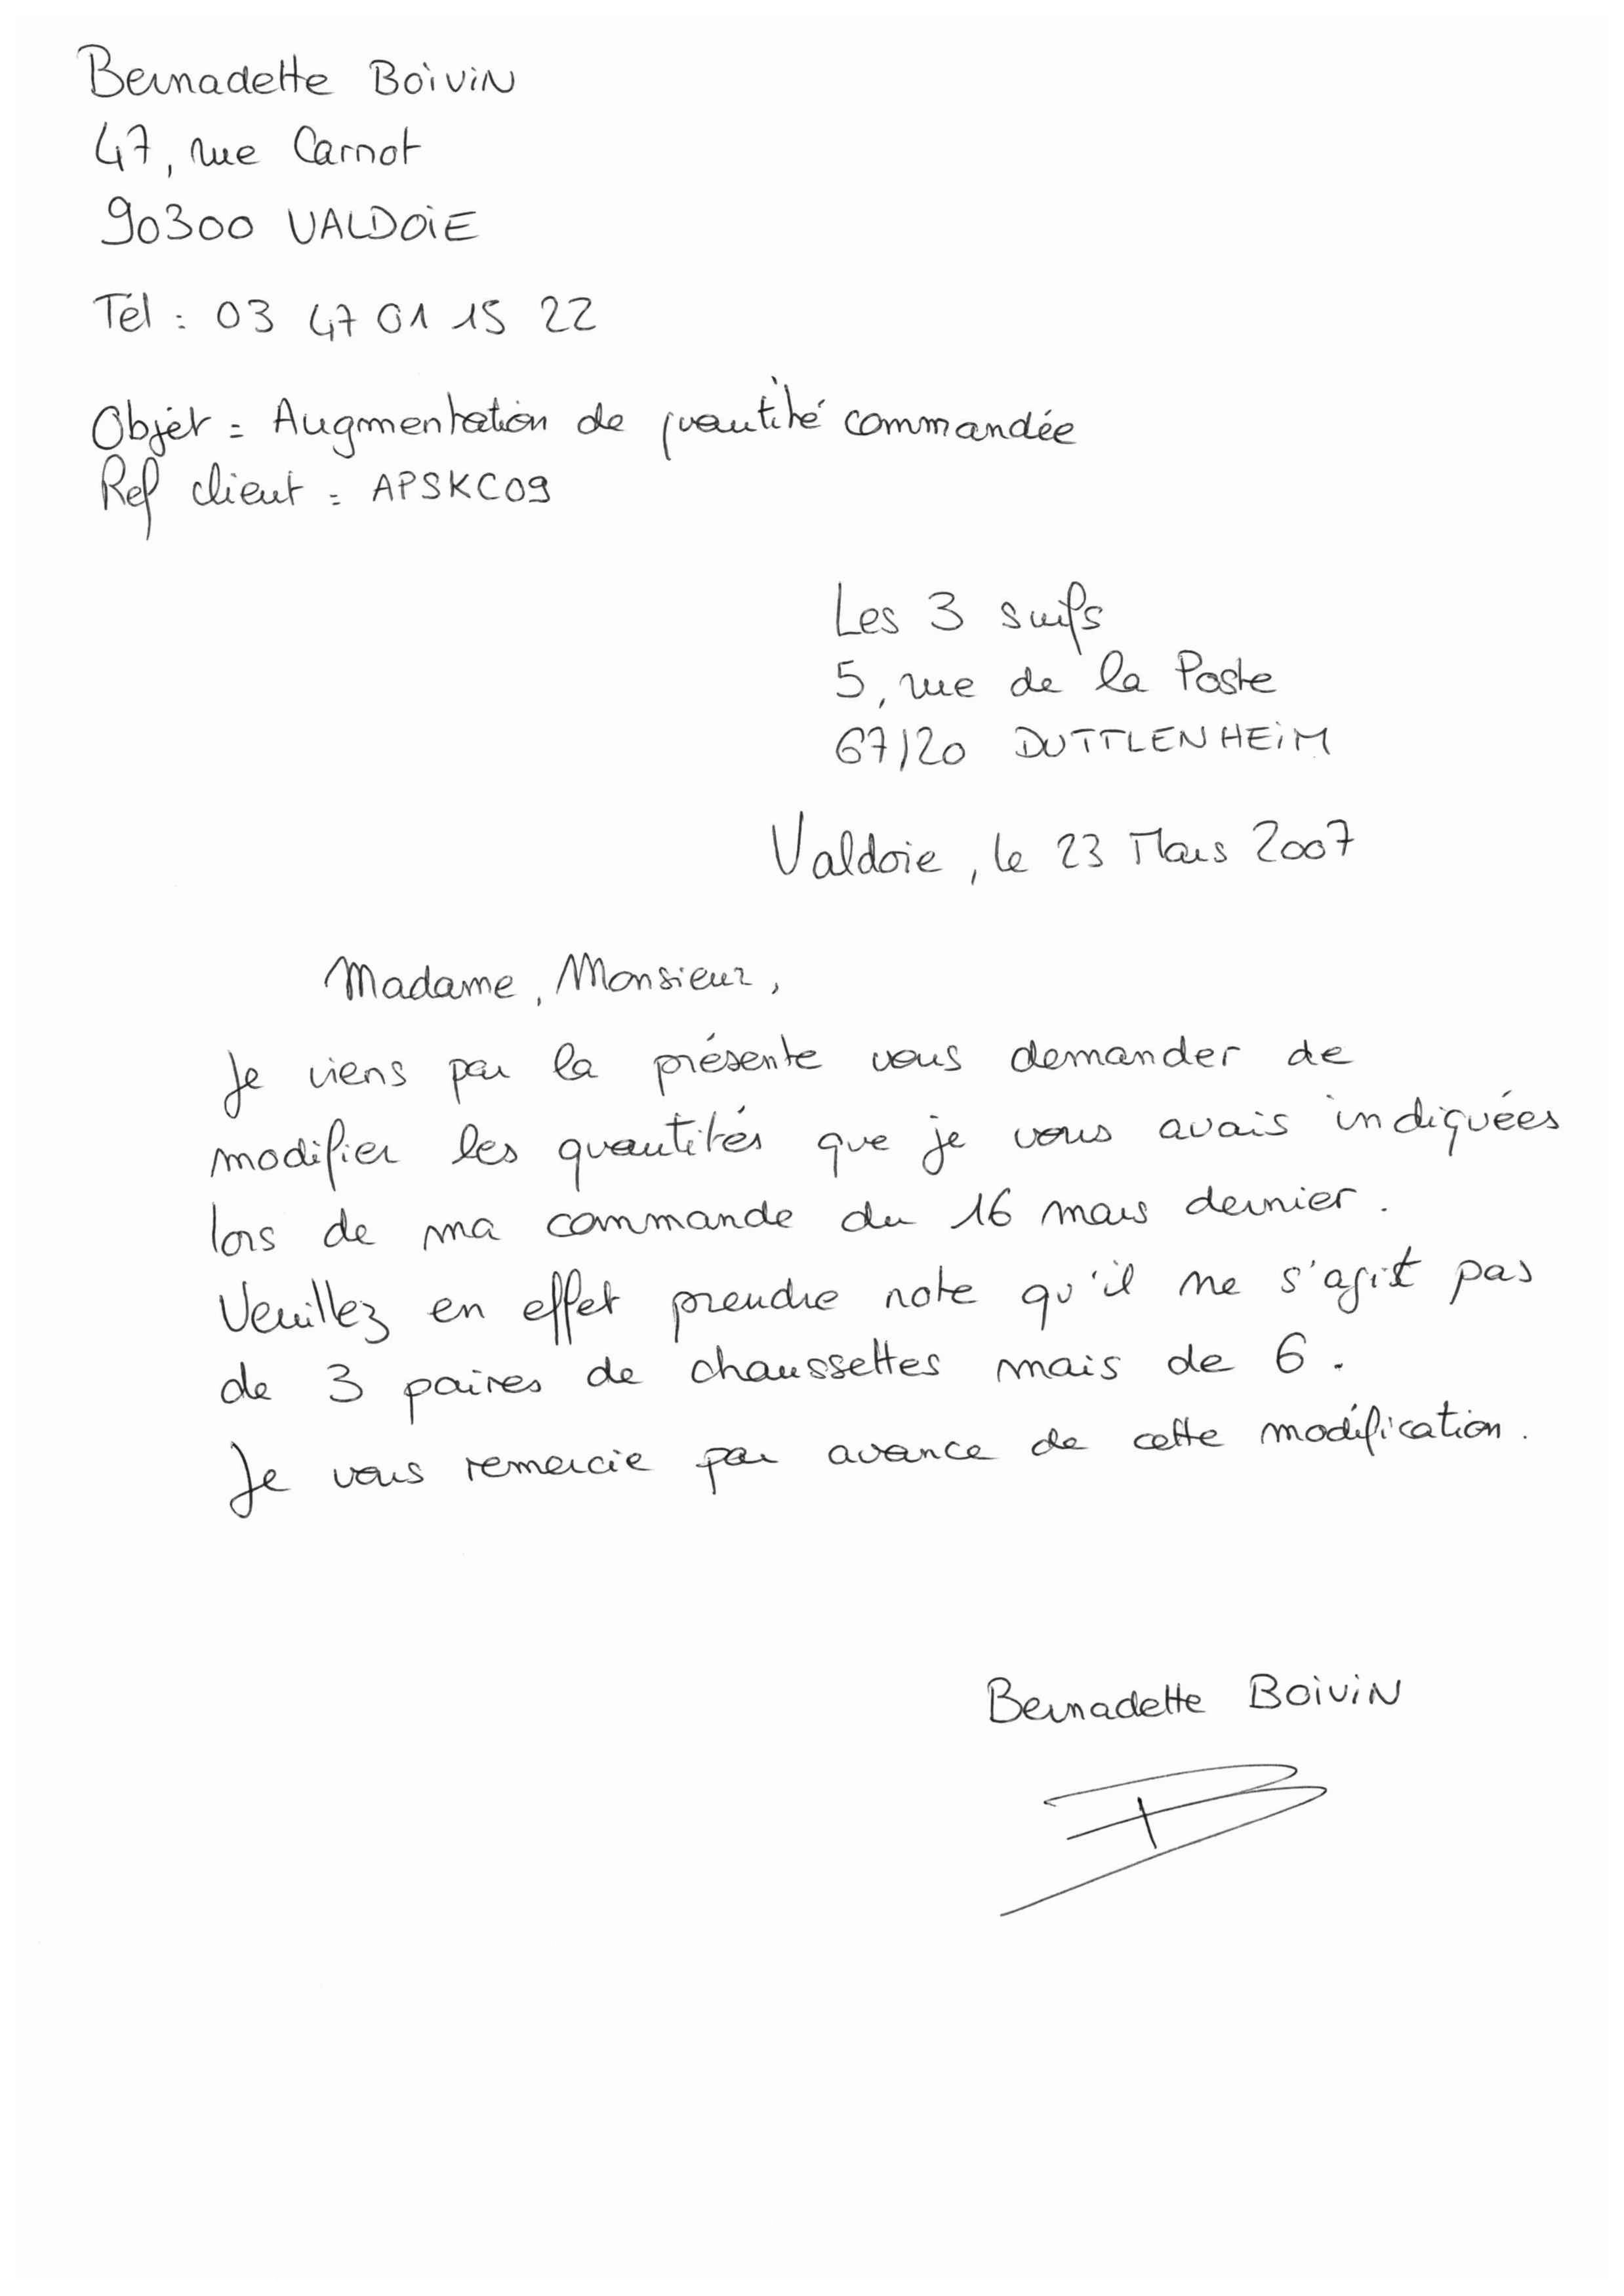 Bernadette BOIVIN
47, rue Carnot
90300 VALDOIE
Tél : 03 47 01 15 22
Objet = Augmentation de quantité commandée
Ref client = APSKC09
Les 3 suifs
5, rue de la Poste
67120 DUTTLENHEIM
Valdoie, le 23 Mars 2007
Madame, Monsieur,
Je viens par la présente vous demander de
modifier les quantités que je vous avais indiquées
lors de ma commande du 16 mars dernier.
Veuillez en effet prendre note qu'il ne s'agit pas
de 3 paires de chaussettes mais de 6.
Je vous remercie par avance de cette modification.
Bernadette BOIVIN